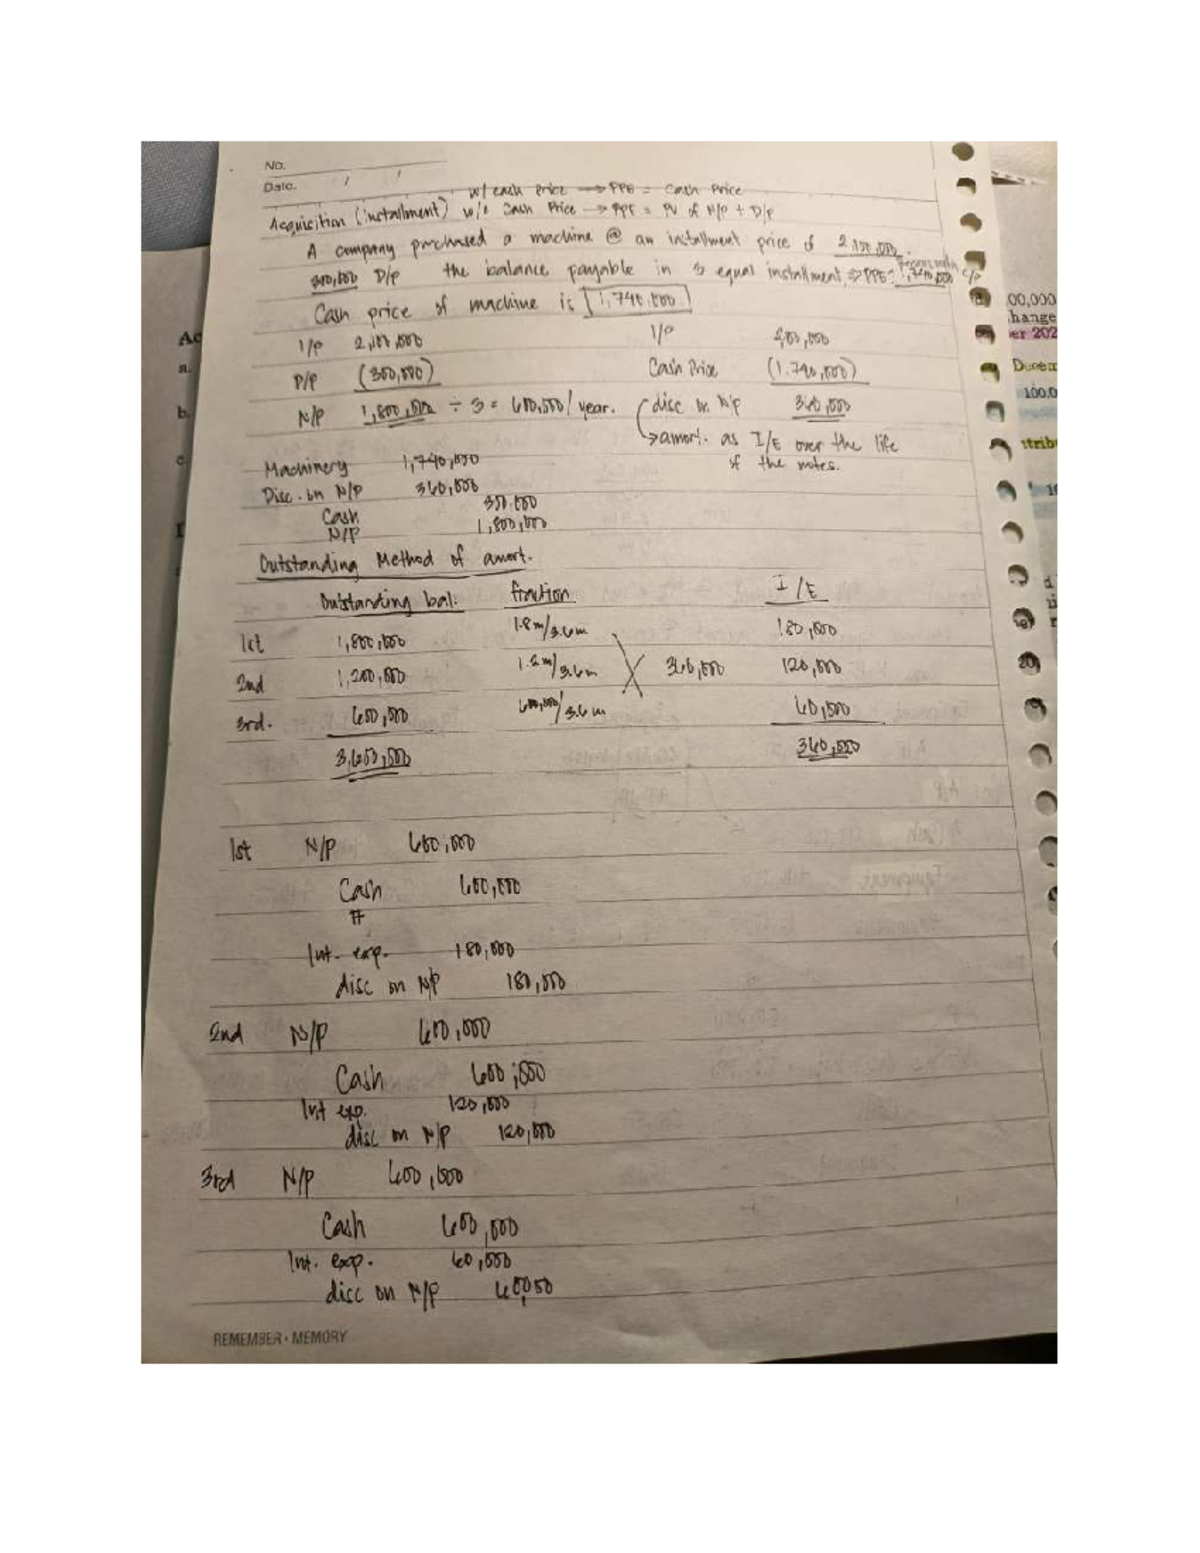 No.
Date. / /
w/ cash price → PPE = Cash Price
Acquisition (installment) w/o Cash Price → PPE = PV of N/P + D/P
A company purchased a machine @ an installment price of 2,100,000.
300,000 D/P the balance payable in 3 equal installment, ⇒ PPE: 1,740,000 c/p
Cash price of machine is 1,740,000
I/P 2,100,000 I/P
D/P (300,000) Cash Price (1,740,000)
N/P 1,800,000 ÷ 3 = 600,000/year. disc on N/P 360,000
→ amort. as I/E over the life
of the notes.
Machinery 1,740,000
Disc. on N/P 360,000
Cash 300,000
N/P 1,800,000
Outstanding Method of amort.
Outstanding bal. fraction I/E
1st 1,800,000 1.8m/3.6m 180,000
2nd 1,200,000 1.2m/3.6m X 360,000 120,000
3rd. 600,000 600,000/3.6m 60,000
3,600,000 360,000
1st N/P 600,000
Cash 600,000
#
Int. exp. 180,000
disc on N/P 180,000
2nd N/P 600,000
Cash 600,000
Int exp. 120,000
disc on N/P 120,000
3rd N/P 600,000
Cash 600,000
Int. exp. 60,000
disc on N/P
REMEMBER • MEMORY
Ac
a.
b.
c
00,000
hange
er 202
Decem
100,0